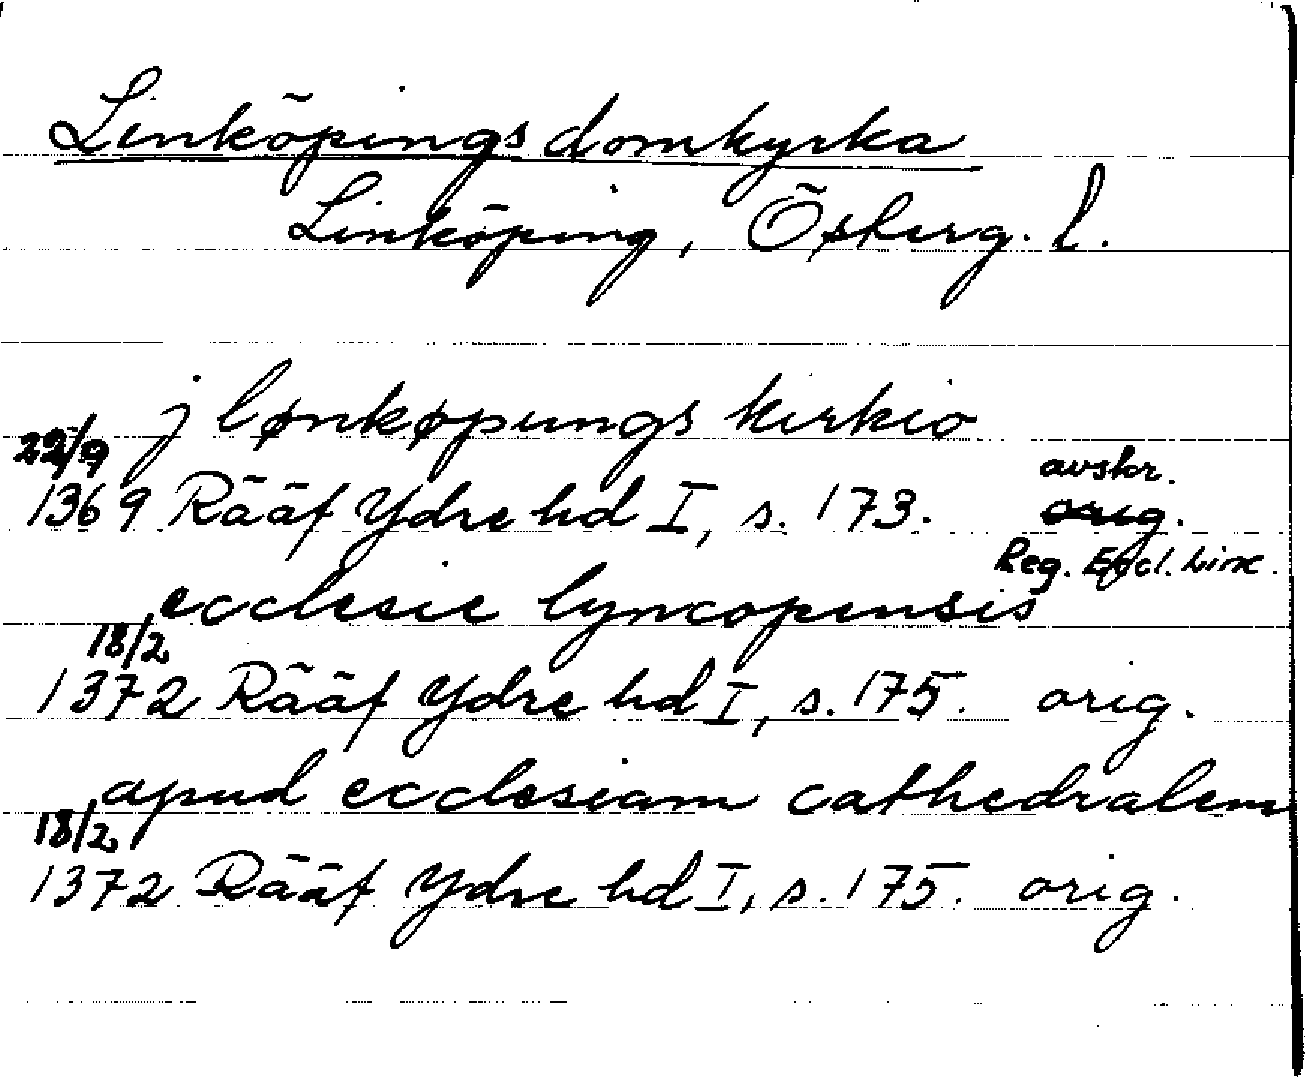 Linköpings domkyrka
Linköping, Österg. l.
j lønkøpungs kirkio
22/9
1369 Rääf Ydre hd I, s. 173. avskr.
orig.
Reg. Eccl. Linc.
ecclesie lyncopensis
18/2
1372 Rääf Ydre hd I, s. 175. orig.
apud ecclesiam cathedralem
18/2
1372 Rääf Ydre hd I, s. 175. orig.